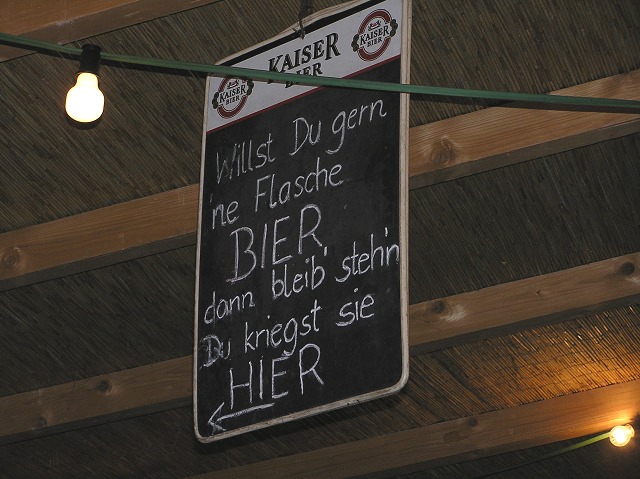 KAISER
BIER
KAISER
BIER
KAISER
BIER
Willst Du gern
'ne Flasche
BIER,
dann bleib' steh'n
Du kriegst sie
HIER